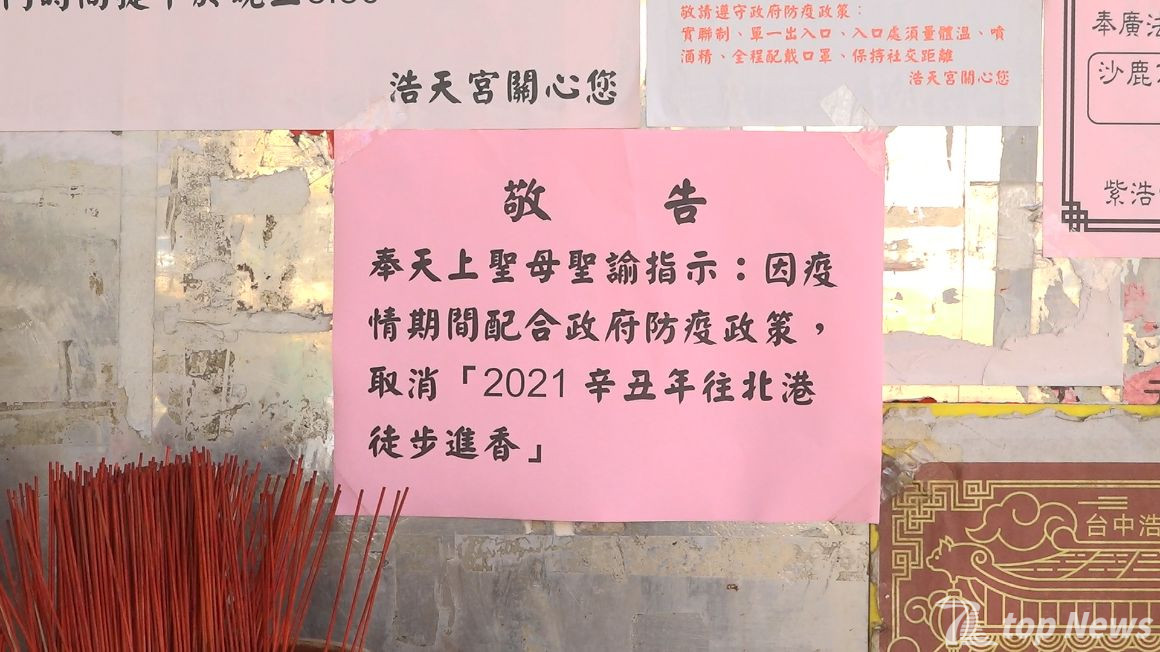 浩天宮關心您
敬請遵守政府防疫政策：
實聯制、單一出入口、入口處須量體溫、噴
酒精、全程配戴口罩、保持社交距離
浩天宮關心您
奉廣法
沙鹿
紫浩
敬 告
奉天上聖母聖諭指示：因疫
情期間配合政府防疫政策，
取消「2021 辛丑年往北港
徒步進香」
台中浩
top News